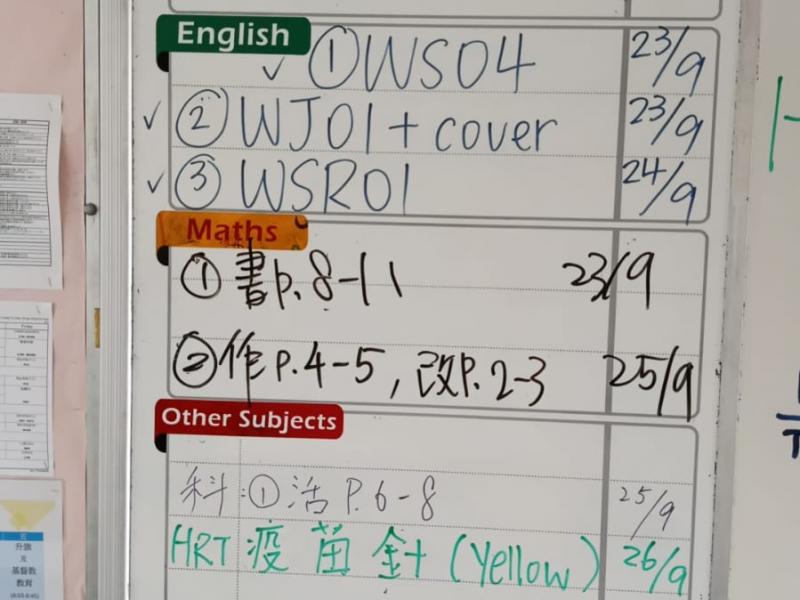 English
✓ ① WS04 23/9
✓ ② WJ01 + cover 23/9
✓ ③ WSR01 24/9
Maths
① 書p.8-11 23/9
② 作p.4-5, 改p.2-3 25/9
Other Subjects
科:① 活 P.6-8 25/9
HRT 疫苗針 (Yellow) 26/9
升旗
及
基督教
教育